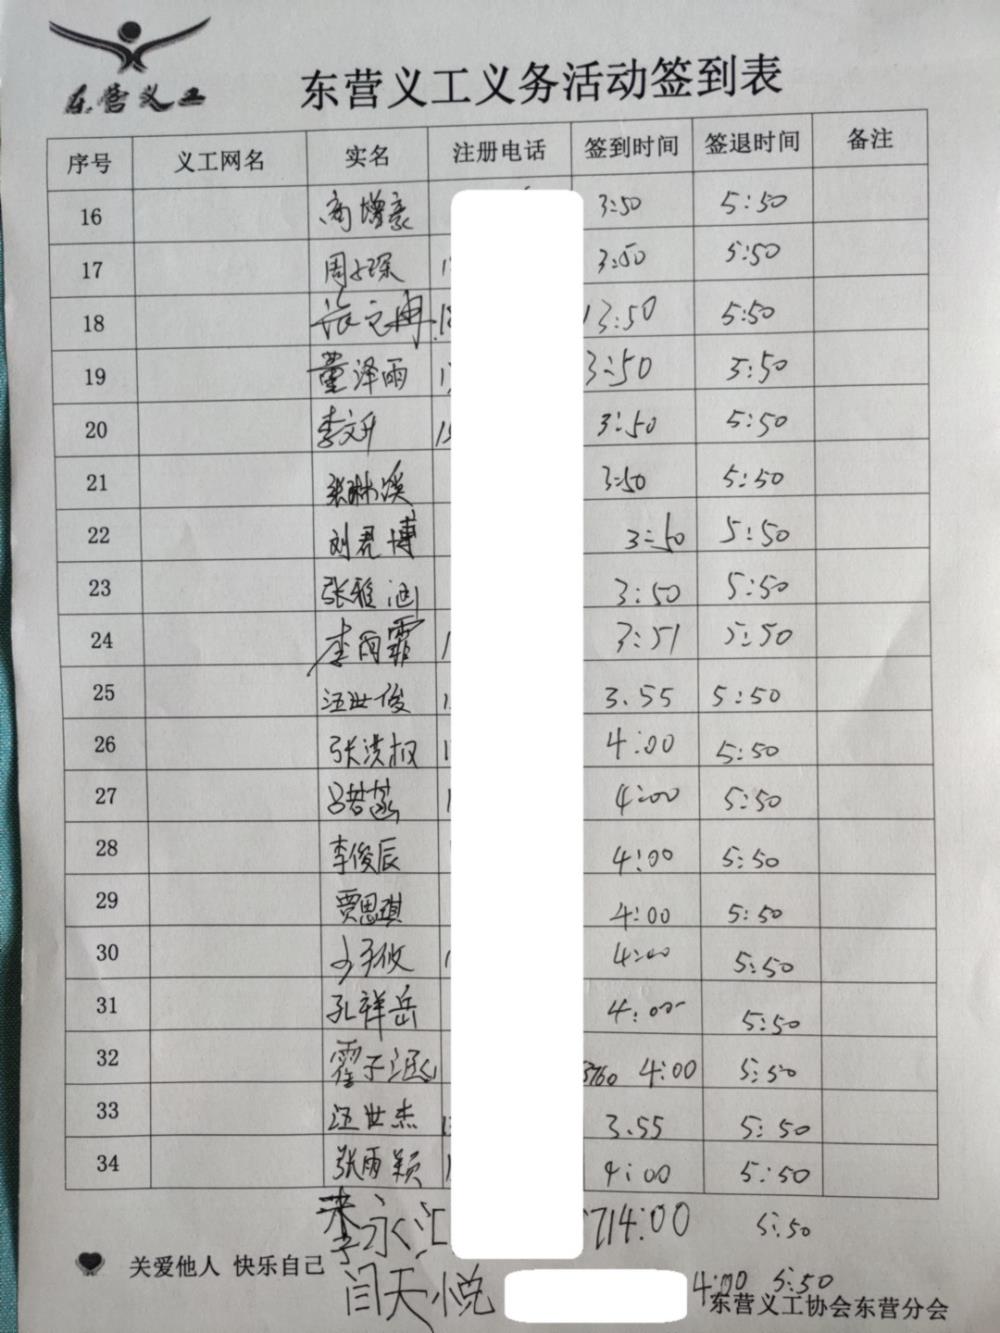 东营义工
东营义工义务活动签到表
序号 义工网名 实名 注册电话 签到时间 签退时间 备注
16 高增豪 3:50 5:50
17 周 琛 3:50 5:50
18 张文冉 13:50 5:50
19 董泽雨 3:50 5:50
20 李文升 3:50 5:50
21 张琳溪 3:50 5:50
22 刘君博 3:50 5:50
23 张雅涵 3:50 5:50
24 李雨霏 3:51 5:50
25 汪世俊 3.55 5:50
26 张洪权 4:00 5:50
27 吕若菡 4:00 5:50
28 李俊辰 4:00 5:50
29 贾思琪 4:00 5:50
30 4:00 5:50
31 孔祥岳 4:00 5:50
32 霍子涵 3760 4:00 5:50
33 汪世杰 3.55 5:50
34 张雨颖 4:00 5:50
李永汇 714:00 5:50
关爱他人 快乐自己
闫天悦 4:00 5:50
东营义工协会东营分会